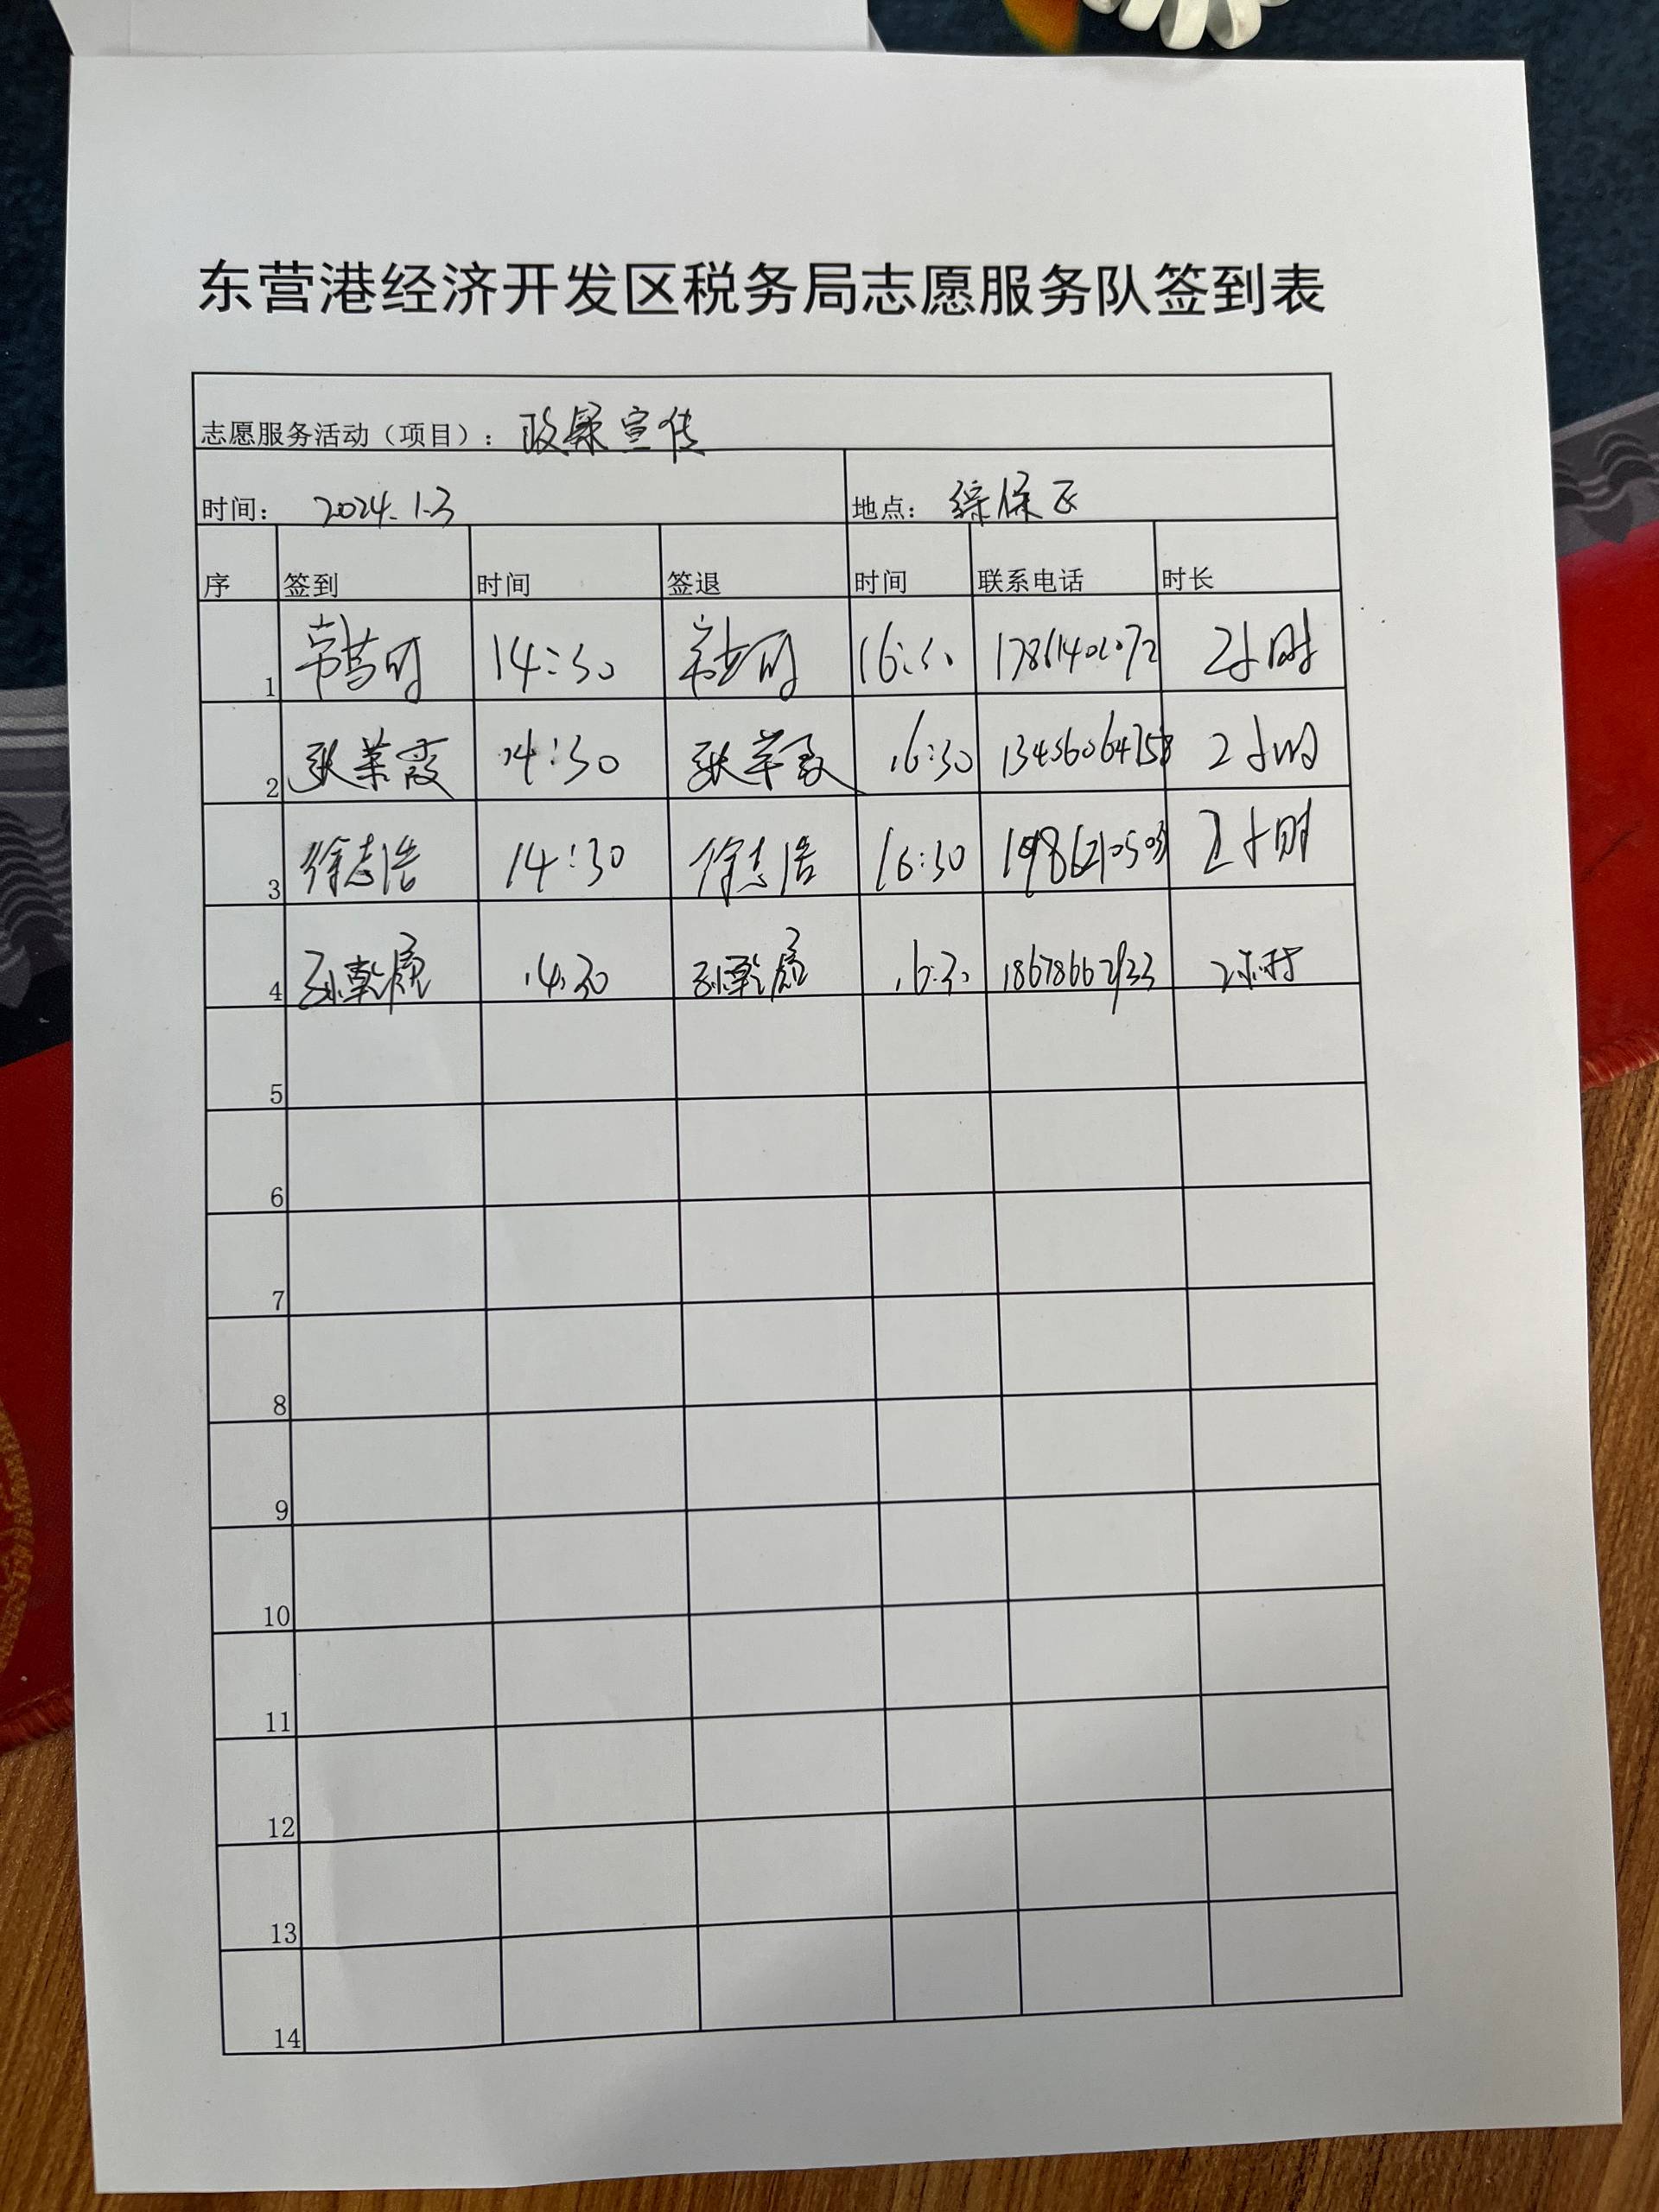 东营港经济开发区税务局志愿服务队签到表
志愿服务活动（项目）：政策宣传
时间： 2024.1.3 地点：综保区
序 签到 时间 签退 时间 联系电话 时长
1 14:30 16:30 2小时
2 张荣霞 14:30 张荣霞 16:30 13456064758 2小时
3 徐志浩 14:30 徐志浩 16:30 2小时
4 14:30 16:30 18678662933 2小时
5
6
7
8
9
10
11
12
13
14